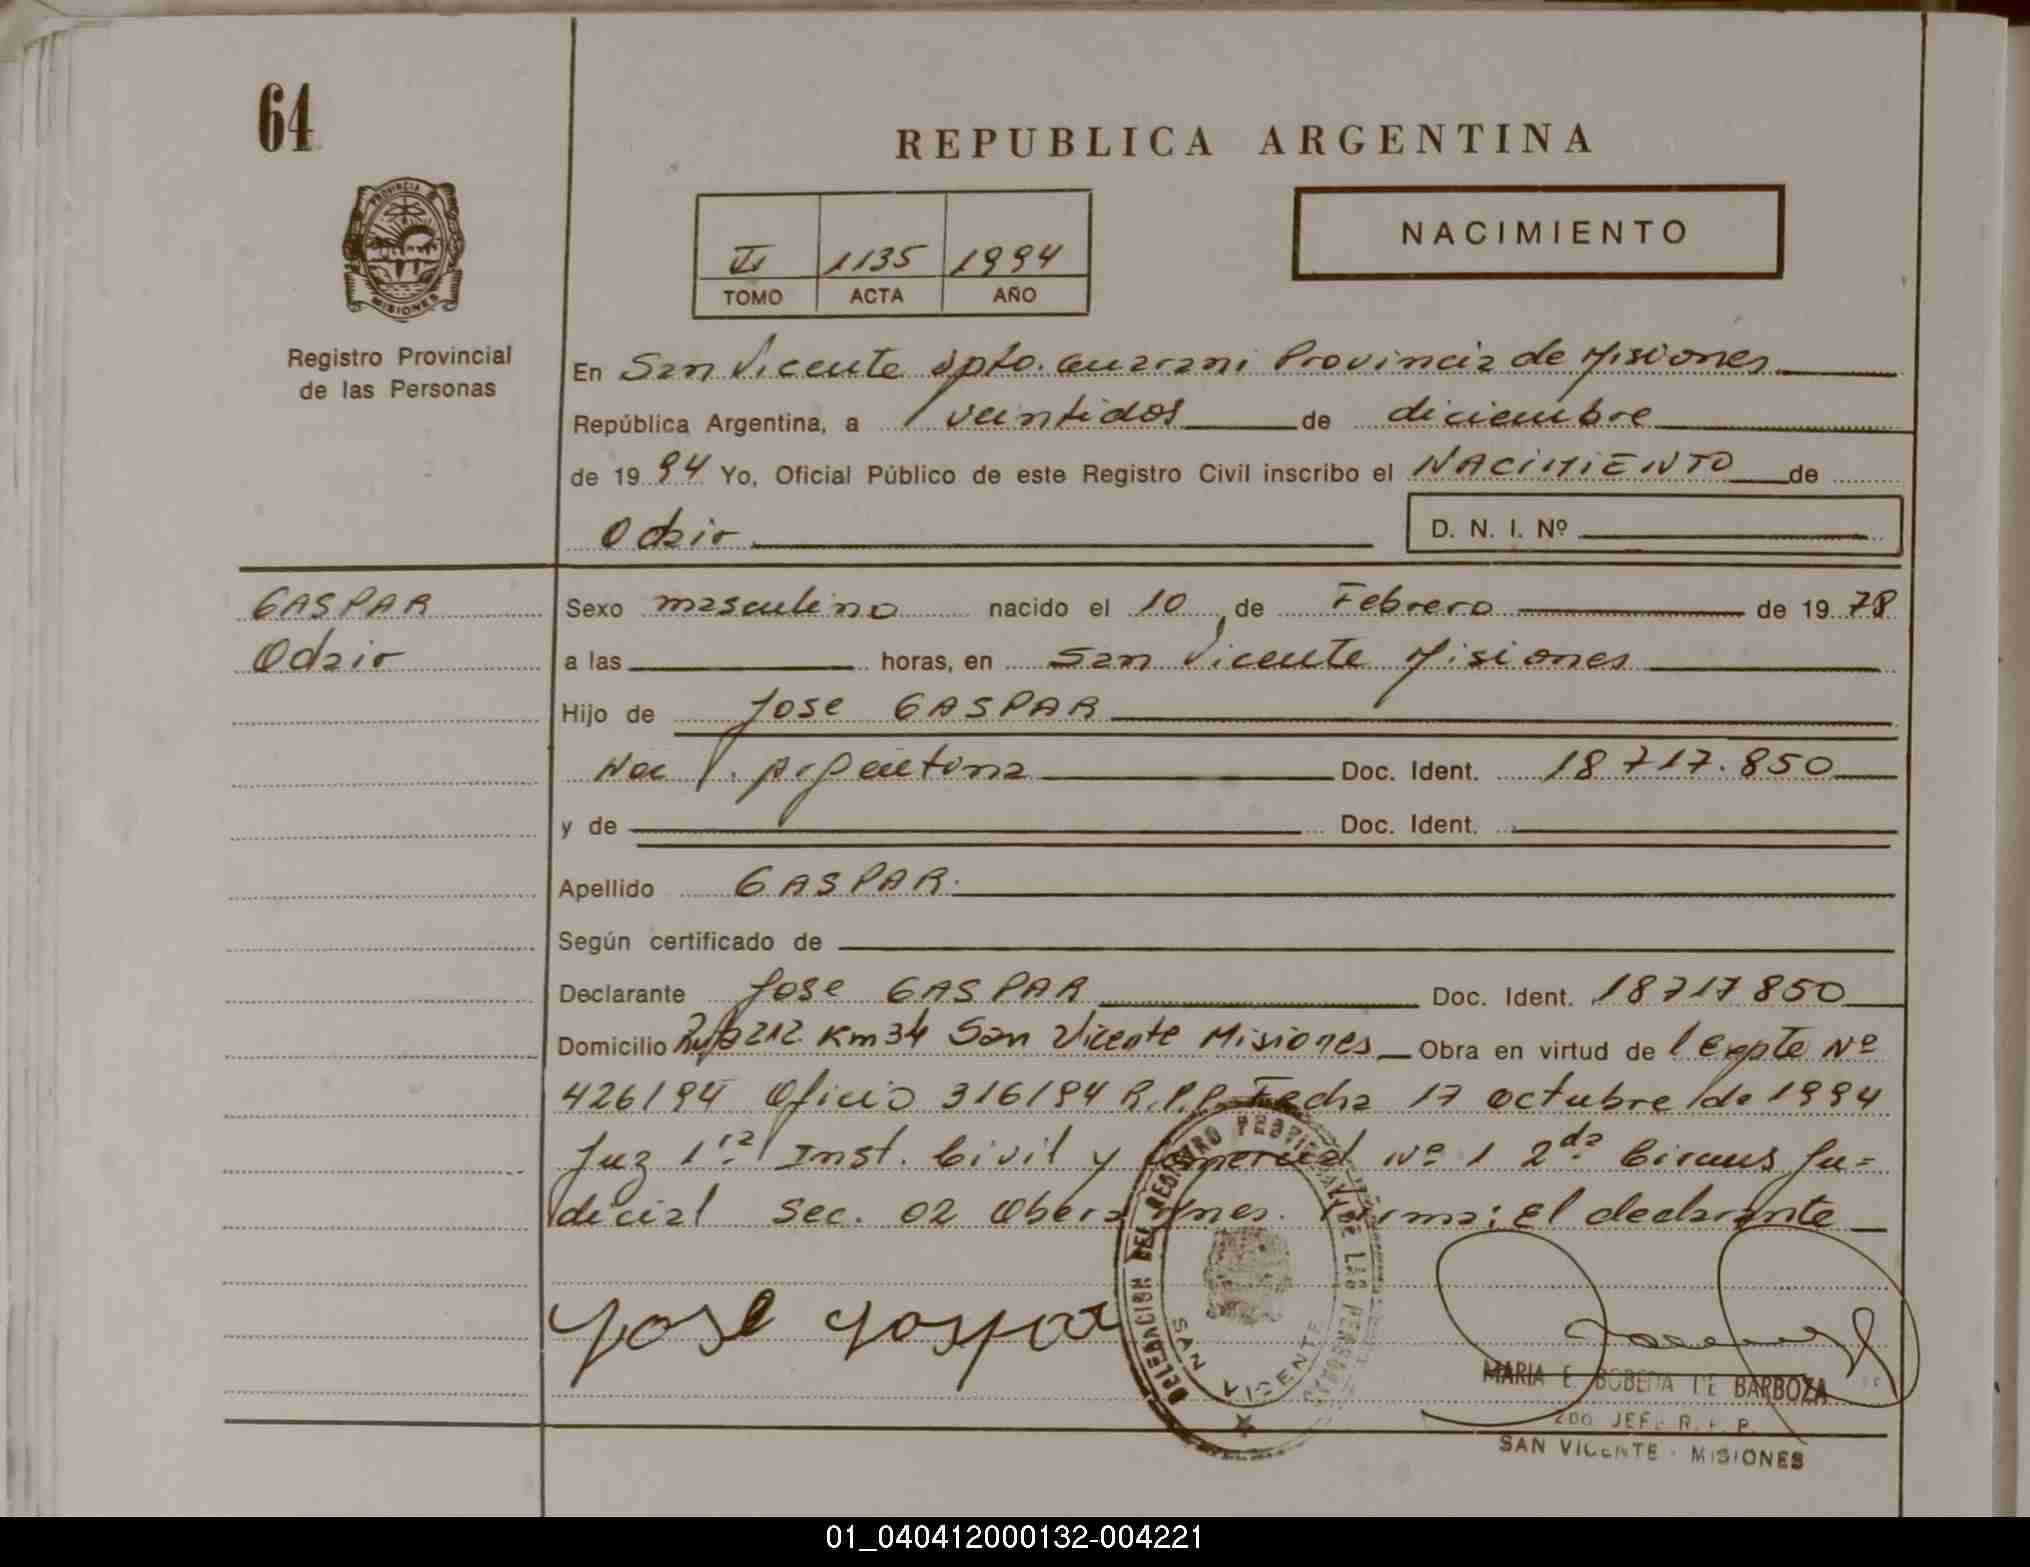 64
REPUBLICA ARGENTINA
PROVINCIA DE
MISIONES
NACIMIENTO
1135 1994
TOMO ACTA AÑO
Registro Provincial
de las Personas
En San Vicente dpto. Guarani Provincia de Misiones
República Argentina, a veintidos de diciembre
de 19 94 Yo, Oficial Público de este Registro Civil inscribo el NACIMIENTO de
Odair D. N. I. Nº
GASPAR
Odair
Sexo masculino nacido el 10 de Febrero de 19 78
a las horas, en San Vicente Misiones
Hijo de Jose GASPAR
Nac. Argentina Doc. Ident. 18 717.850
y de Doc. Ident.
Apellido GASPAR.
Según certificado de
Declarante Jose GASPAR Doc. Ident. 18717850
Domicilio 212 Km 34 San Vicente Misiones Obra en virtud de l Expte Nº
426/94 Oficio 316/94 R.P.P. Fecha 17 octubre de 1994
Juz 1ra Inst. Civil y Comercial Nº 1 2da Circuns Ju=
dicial Sec. 02 Obera Mnes. Firma: El declarante
Jose Gaspar
DELEGACION DEL REGISTRO PROVINCIAL DE LAS PERSONAS
SAN VICENTE
MARIA E. BOBEDA DE BARBOZA
2DO JEFE R. P. P.
SAN VICENTE - MISIONES
01_040412000132-004221